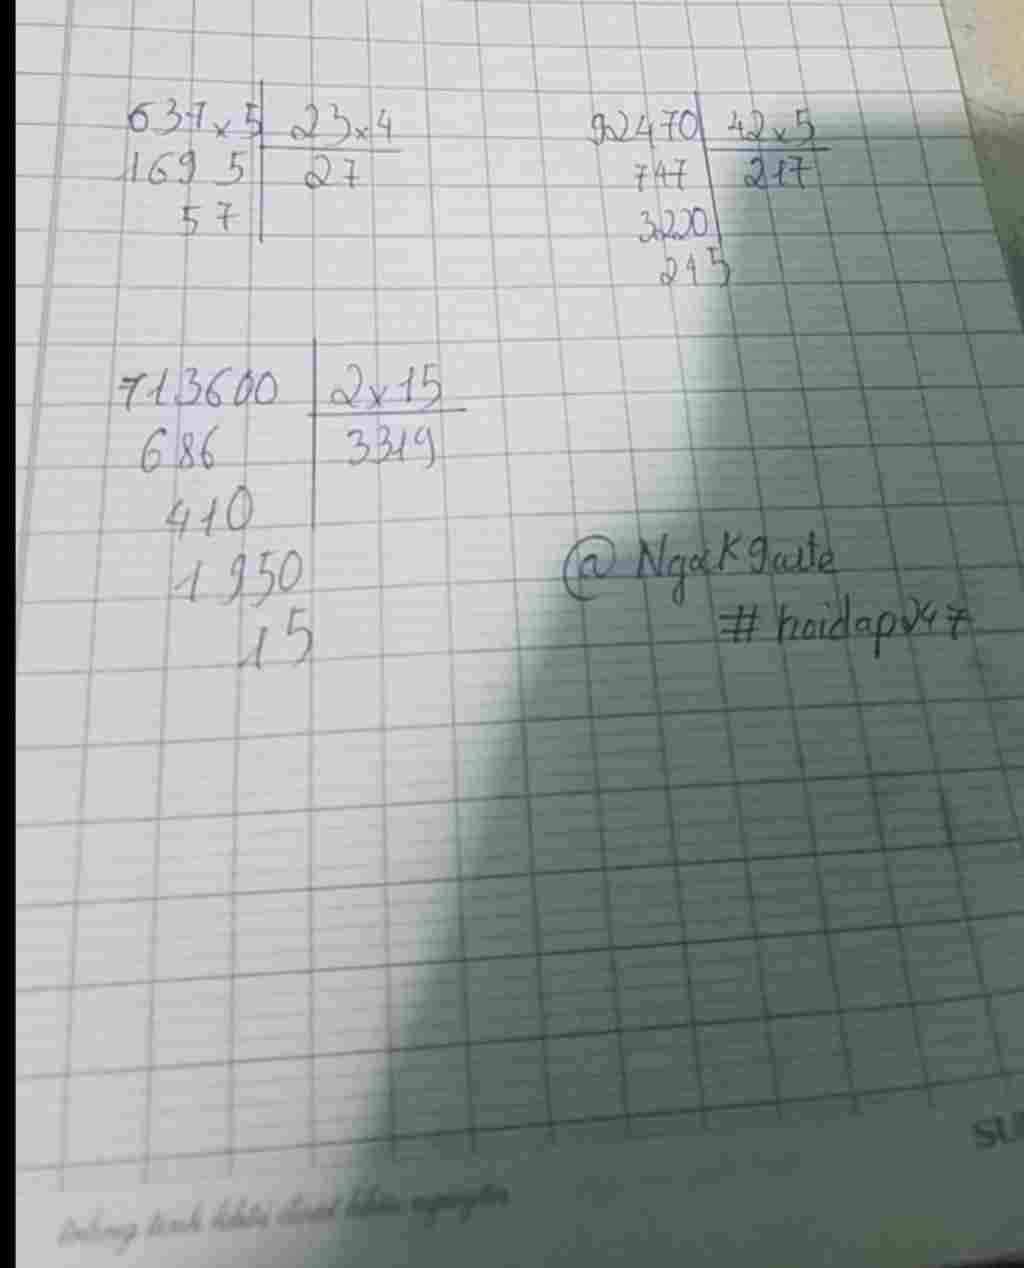 637x5 23x4
169 5 27
57
92470 42x5
747 217
3220
215
713600 2x15
686 3319
410
1950
15
@ Ngọc Kgaute
# hoidap247
SU